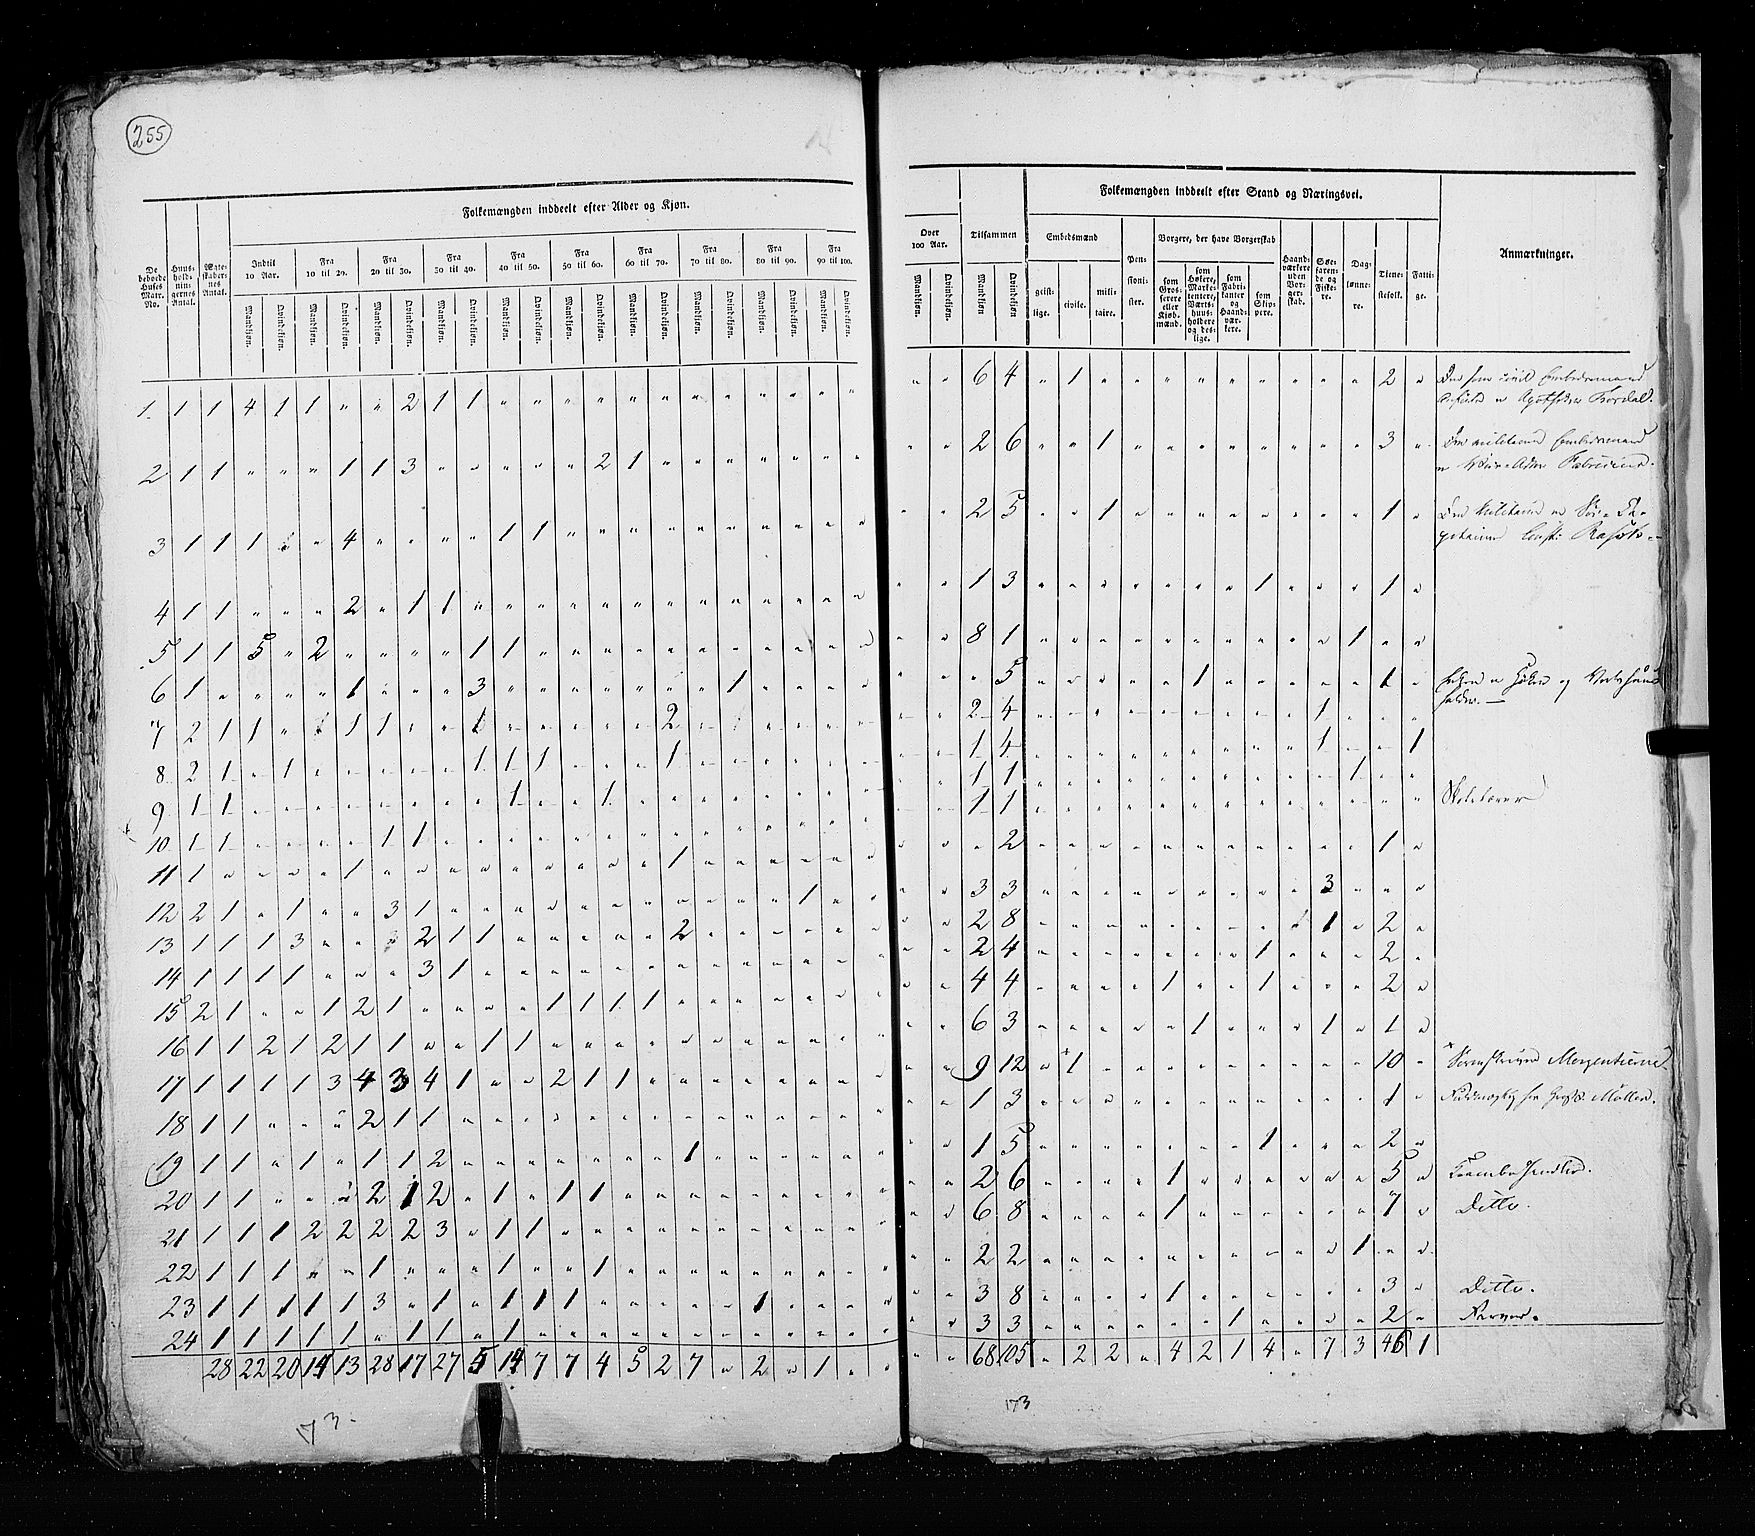 255
Folkemængden inddeelt efter Alder og Kjøn.
De beboede Huses Matr. No.
Huus-hold-nin-gernes Antal.
Ægte-skaber-nes Antal.
Indtil 10 Aar.
Fra 10 til 20.
Fra 20 til 30.
Fra 30 til 40.
Fra 40 til 50.
Fra 50 til 60.
Fra 60 til 70.
Fra 70 til 80.
Fra 80 til 90.
Fra 90 til 100.
Mandkjøn. Qvindekjøn. Mandkjøn. Qvindekjøn. Mandkjøn. Qvindekjøn. Mandkjøn. Qvindekjøn. Mandkjøn. Qvindekjøn. Mandkjøn. Qvindekjøn. Mandkjøn. Qvindekjøn. Mandkjøn. Qvindekjøn. Mandkjøn. Qvindekjøn. Mandkjøn. Qvindekjøn.
1. 1 1 4 1 1 " " 2 1 1 " " " " " " " " " " "
2 1 1 " " " 1 1 3 " " " " " 2 1 " " " " " "
3 1 1 1 " " 4 " " " " 1 1 " " " " " " " " "
4 1 1 " " " 2 " 1 1 " " " " " " " " " " " "
5 1 1 5 " 2 " " " " 1 1 " " " " " " " " " "
6 1 " " " " 1 " " " 3 " " " " " " " 1 " " "
7 2 1 1 " 1 1 " " 1 " " " " " 2 " " " " "
8 2 1 " 1 " " " " " 1 1 1 " " " 1 " " " " "
9 1 1 " " " " " " " " 1 " " 1 " " " " " " "
10 1 1 " " " " 1 1 " " " " " " " " " " " " "
11 1 " " " " 1 " " " " " " " " " 1 " " " " "
12 2 1 " 1 " " 3 1 " " " " " " " " " " " 1 "
13 1 1 1 3 " " " 2 1 1 " " " " " 2 " " " " "
14 1 1 1 1 " " " 3 1 " " " " " " " " " " " "
15 2 1 " " 1 2 1 " " " " 1 1 1 1 " " " " " "
16 1 1 2 1 2 1 1 " 1 1 " " " " " " " " " "
17 1 1 1 1 3 4 3 4 1 " " 2 1 1 " " " " " "
18 1 1 " " " 2 1 1 " " " " " " " " " " " "
19 1 1 " 1 " 1 1 2 " " " " " " " 1 " " " "
20 1 1 " " " 2 1 2 " 1 " 1 1 " " " " " " "
21 1 1 1 2 2 2 2 3 " 1 1 " " " " " " " " "
22 1 1 1 " " 1 " " " 1 " " 1 " " " " " " "
23 1 1 1 1 1 3 " 1 " 1 1 1 " " " " " 1 " "
24 1 1 1 1 1 " 1 1 " 1 " " " " " " " " " "
28 22 20 14 13 28 17 27 5 14 7 7 4 5 2 7 " 2 " 1 " "
173
Folkemængden inddeelt efter Stand og Næringsvei.
Over 100 Aar.
Tilsammen
Embedsmænd
Pen-sioni-ster.
Borgere, der have Borgerskab
Haand-værkere uden Bor-ger-skab.
Søe-faren-de og Fiske-re.
Dag-lønne-re.
Tiene-stefolk.
Fatti-ge.
Anmærkninger.
Mandkjøn. Qvindekjøn. Mandkjøn Qvindekjøn
geist-lige.
civile.
mili-taire.
som Gros-serere eller Kjøb-mænd.
som Høkere, Marke-tentere, Værts-huus-holdere og des-lige.
som Fabri-kanter og Haand-vær-kere.
som Skip-pere.
" " 6 4 " 1 " " " " " " " " " 2 " Den som civil Embedsmand
Apotheker
" " 2 6 " " 1 " " " " " " " " 3 " Den militaire Embedsmand
" " 2 5 " " 1 " " " " " " " " 1 " Den Militaire er
" " 1 3 " " " " " " " 1 " " " 1 "
" " 8 1 " " " " " " " " " " 1 " "
" " " 5 " " " " " 1 " " " " " 1 " Enken er Høker og Vertshuus
holder. —
" " 2 4 " " " " " " " " " 1 " " "
" " 1 4 " " " " " " " " " 1 " " 1
" " 1 1 " " " " " " " " " " 1 " "
" " 1 1 " " " " " " " " " " " " " Skolelærer
" " " 2 " " " " " " " " " " " 1 "
" " 3 3 " " " " " " " " " 3 " " "
" " 2 8 " " " " " " " " 1 " 2 "
" " 2 4 " " " " " " " 1 " " " 2 "
" " 4 4 " " " " 1 " " 1 " " " 2 "
" " 6 3 " " " " " 1 " " " 1 " 1 "
" " 9 12 " *1 " " " " " " " " " 10 " * Sorenskriver
" " 1 3 " " " " " " " " " " " 1 " Fuldmægtig Møller.
" " 1 5 " " " " " " " 1 " " " 2 "
" " 2 6 " " " " 1 " " " " " " 5 "
" " 6 8 " " " " 1 " " " " " " 7 " Ditto.
" " 2 2 " " " " " " " " " " 1 " "
" " 3 8 " " " " 1 " " " " " " 3 " Ditto.
" " 3 3 " " " " " " 1 " " " " 2 " Farver.
" " 68 105 " 2 2 " 4 2 1 4 " 7 3 46 1
173